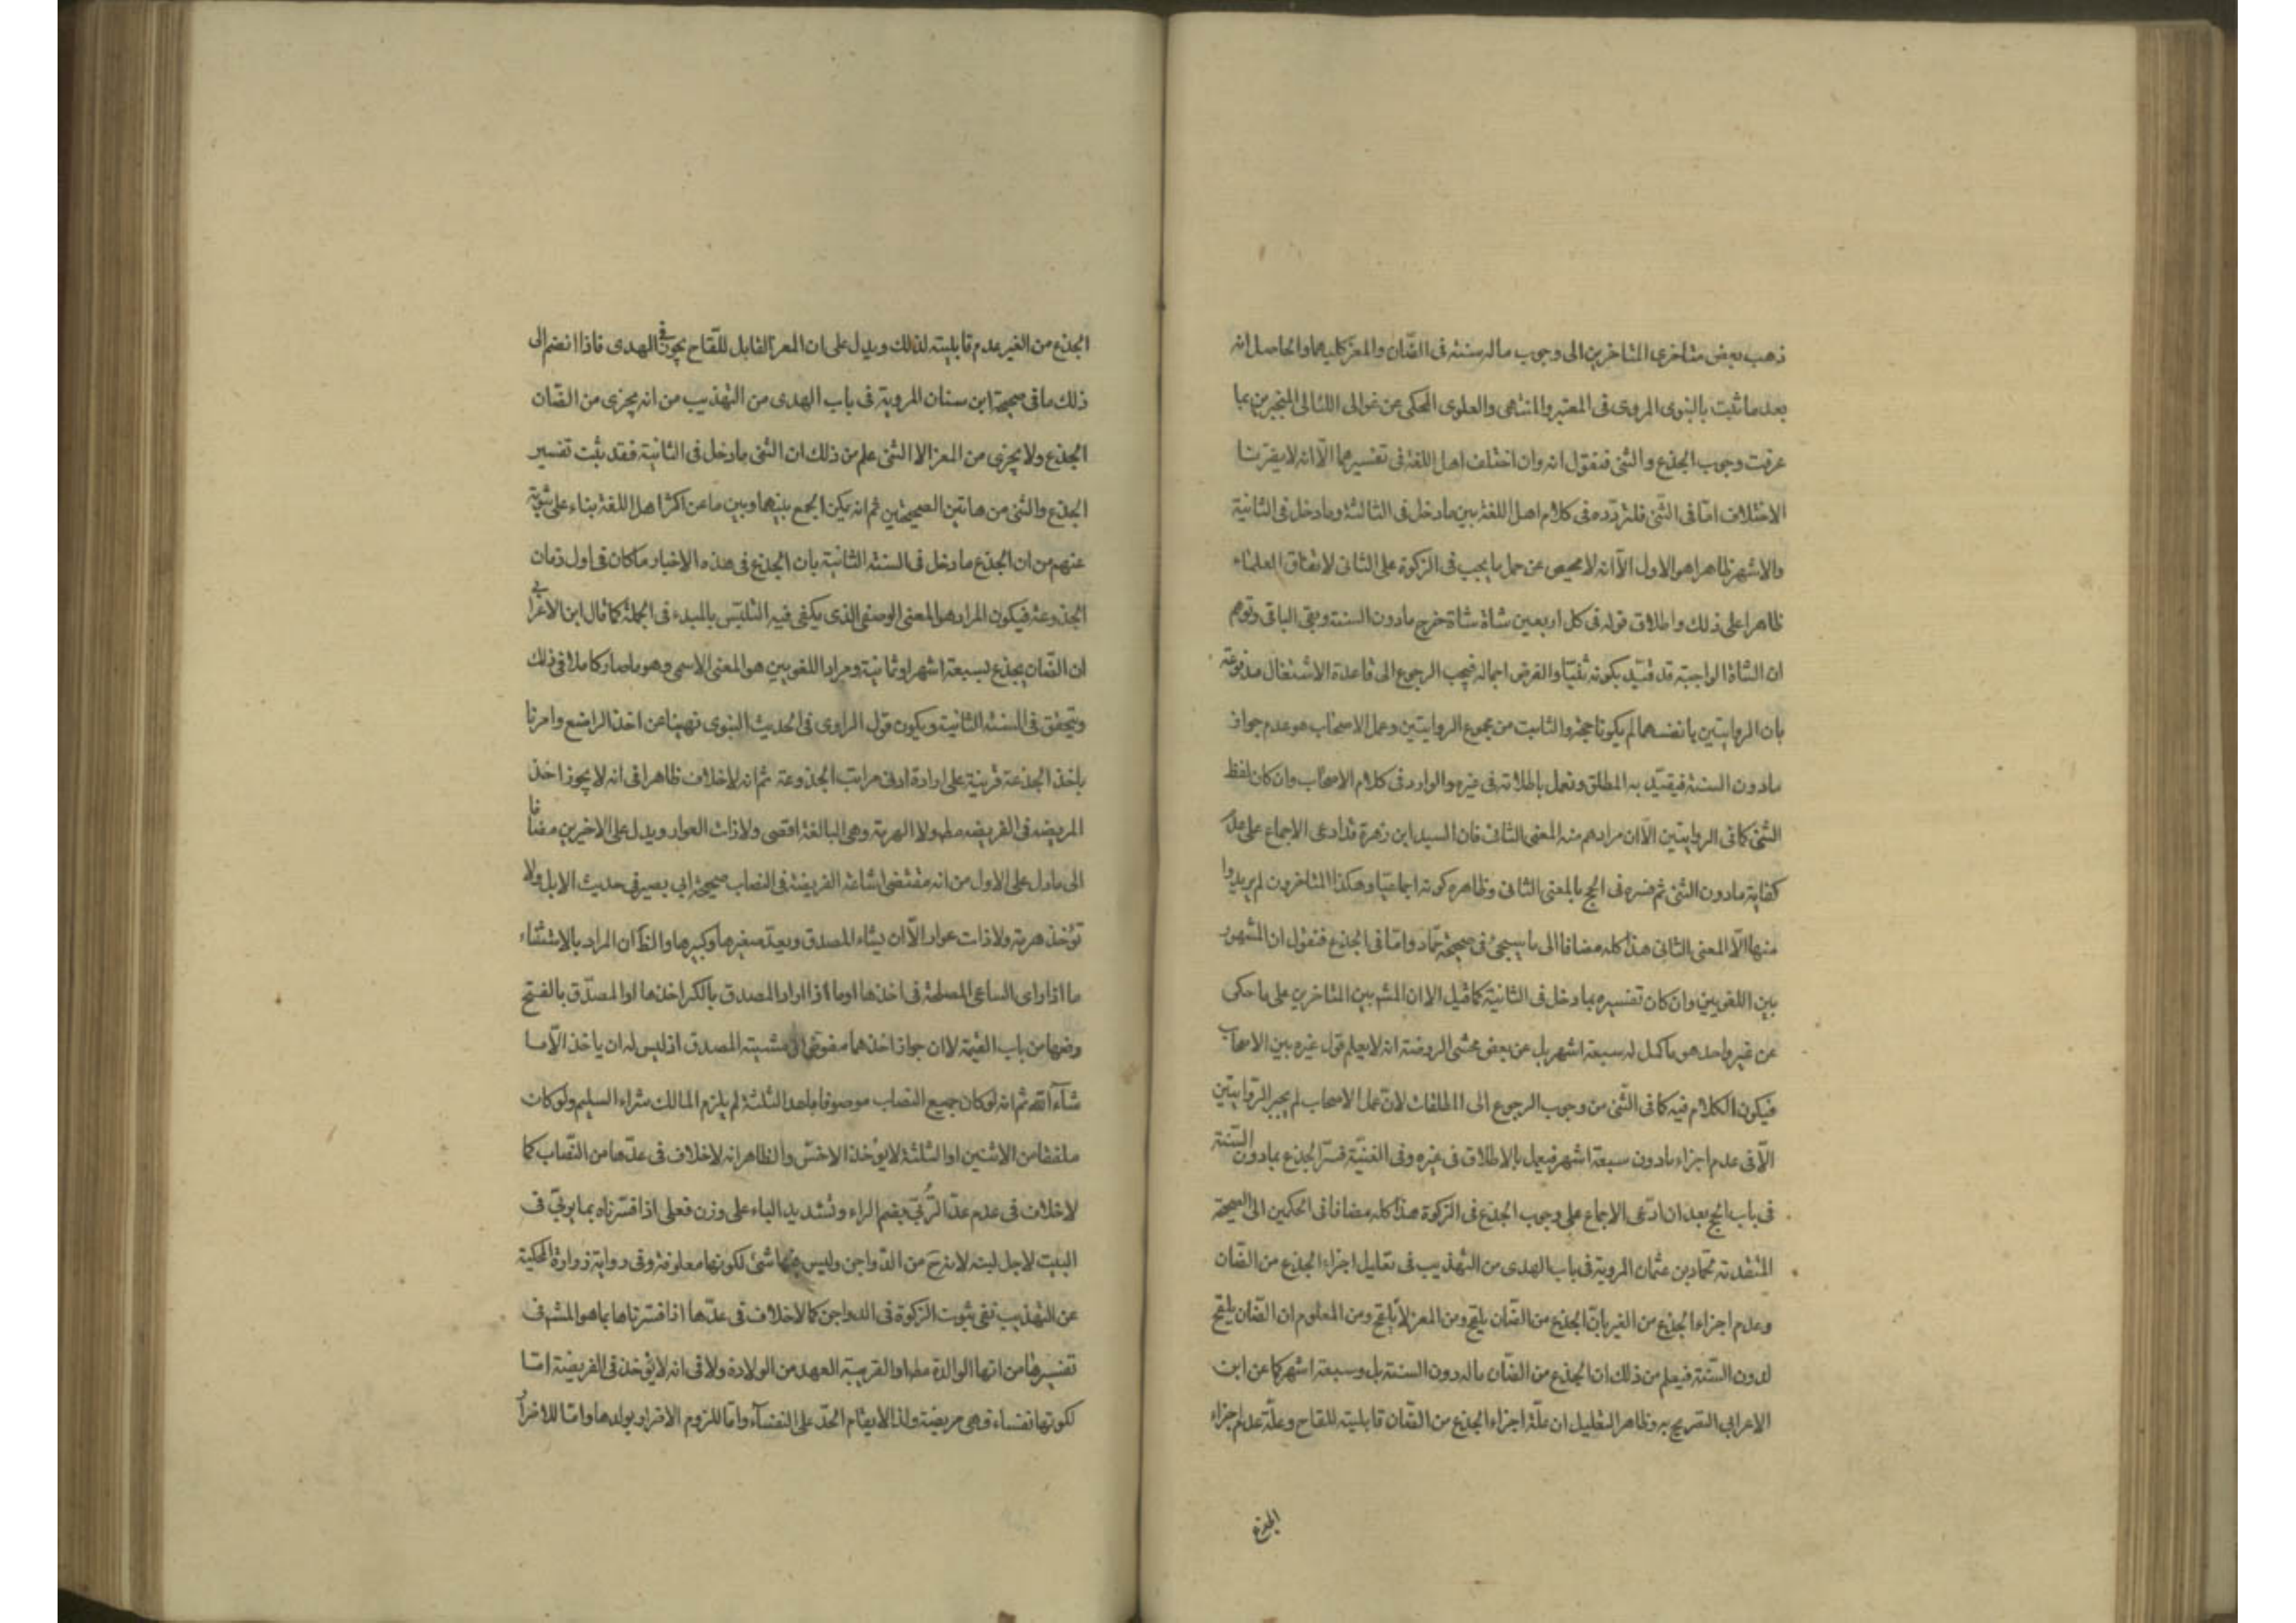 ذهب بعض متاخرى المتاخرين الى وجوب ماله سنته فى الضّان والمعز كليهما والحاصل انه
بعد ما ثبت بالنبوى المروى فى المعتبر والمنتهى والعلوى المحكى عن غوالى اللئالى المنجبرين بما
عرفت وجوب الجذع والثنى فنقول انه وان اختلف اهل اللغة فى تفسيرهما الّا انه لا يضرنا
الاختلاف امّا فى الثّنى فلتردّده فى كلام اهل اللغة بين ما دخل فى الثالثة وما دخل فى الثانية
والاشهر ظاهرا هو الاول الّا انه لا محيص عن حمل ما يجب فى الزكوة على الثانى لاتفاق العلماء
ظاهرا على ذلك واطلاق قوله فى كل اربعين شاة شاة خرج مادون السنة وبقى الباقى وتوهم
ان الشاة الواجبة قد قيّد بكونه ثنيّا والفرض اجماله فيجب الرجوع الى قاعدة الاشتغال مدفوعة
بان الروايتين بانفسهما لم يكونا حجة والثابت من مجموع الروايتين وعمل الاصحاب هو عدم جواز
مادون السنة فيقيّد به المطلق ونعمل باطلاقه فى غيره والوارد فى كلام الاصحاب وان كان لفظ
الثنى كما فى الروايتين الّا ان مرادهم منه المعنى الثانى فان السيد ابن زهرة قد ادعى الاجماع على عدم
كفاية مادون الثنى ثم فسره فى الحج بالمعنى الثانى وظاهره كونه اجماعيّا وهكذا المتاخرون لم يريدوا
منها الّا المعنى الثانى هذا كله مضافا الى ما سيجئ فى صحيحة حمّاد وامّا فى الجذع فنقول ان المشهور
بين اللغويين وان كان تفسيره بما دخل فى الثانية كما قيل الا ان المشه بين المتاخرين على ما حكى
عن غير واحد هو ما كمل له سبعة اشهر بل عن بعض محشى الروضة انه لا يعلم قول غيره بين الاصحاب
فيكون الكلام فيه كما فى الثّنى من وجوب الرجوع الى المطلقات لانّ عمل الاصحاب لم يجبر الرّوايتين
الّا فى عدم اجزاء مادون سبعة اشهر فيعمل بالاطلاق فى غيره وفى الغنيّة فسّر الجذع بمادون السّنة
فى باب الحج بعد ان ادّعى الاجماع على وجوب الجذع فى الزكوة هذا كله مضافا فى الحكمين الى الصحيحة
المتقدمة لحمّاد بن عثمان المروية فى باب الهدى من التهذيب فى تعليل اجزاء الجذع من الضّان
وعدم اجزاء الجذع من الغير بانّ الجذع من الضّان يلقح ومن المعز لا يلقح ومن المعلوم ان الضّان يلقح
لدون السّنة فيعلم من ذلك ان الجذع من الضّان ماله دون السنة بل وسبعة اشهر كما عن ابن
الاعرابى التصريح به وظاهر التعليل ان علّة اجزاء الجذع من الضّان قابليته للقاح وعلّة عدم اجزاء
الجذع
الجذع من الغير عدم قابليته لذلك ويدل على ان المعز القابل للّقاح يجوز فى الهدى فاذا انضم الى
ذلك ما فى صحيحة ابن سنان المروية فى باب الهدى من التهذيب من انه يجزى من الضّان
الجذع ولا يجزى من المعز الا الثنى علم من ذلك ان الثنى مادخل فى الثانية فقد ثبت تفسير
الجذع والثنى من هاتين الصحيحتين ثم انه يمكن الجمع بينهما وبين ما عن اكثر اهل اللغة بناء على ثبوته
عنهم من ان الجذع مادخل فى السنة الثانية بان الجذع فى هذه الاخبار ماكان فى اول زمان
الجذوعة فيكون المراد هو المعنى الوصفى الذى يكفى فيه التلبّس بالمبدء فى الجملة كما قال ابن الاعرابى
ان الضّان يجذع لسبعة اشهر او ثمانية ومراد اللغويين هو المعنى الاسمى وهو ما صار كاملا فى ذلك
ويتحقق فى السنة الثانية ويكون قول الراوى فى الحديث النبوى نهينا عن اخذ الراضع وامرنا
باخذ الجذعة قرينة على ارادة ادنى مراتب الجذوعة ثم انه لا خلاف ظاهرا فى انه لا يجوز اخذ
المريضه فى الفريضه مطه ولا الهرمة وهى البالغة اقصى ولا ذات العوار ويدل على الاخيرين مضافا
الى مادل على الاول من انه مقتضى اشاعة الفريضة فى النصاب صحيحة ابى بصير فى حديث الابل ولا
تؤخذ هرمة ولا ذات عوار الّا ان يشاء المصدق ويعدّ صغيرها وكبيرها والظّ ان المراد بالاستثناء
ما اذا راى الساعى المصلحة فى اخذها او ما اذا اراد المصدق بالكسر اخذها او المصدّق بالفتح
دفعها من باب القيمة لا ان جواز اخذهما مفوض الى مشيته المصدق اذ ليس له ان ياخذ الّا ما
شاء الله ثم انه لو كان جميع النصاب موصوفا باحد الثلثة لم يلزم المالك شراء السليم ولو كان
ملفقا من الاثنين او الثلثة لا يؤخذ الاخسّ والظاهر انه لا خلاف فى عدّها من النّصاب كما
لا خلاف فى عدم عدّ الرُّبّى بضم الراء وتشديد الباء على وزن فعلى اذا فسّرناه بما يربّى فى
البيت لاجل لبنه لانه ح من الدّواجن وليس فيها شئ لكونها معلوفة وفى رواية زرارة المحكية
عن التهذيب نفى ثبوت الزكوة فى الدواجن كما لا خلاف فى عدّها اذا فسّرناها بما هو المشه فى
تفسيرها من انها الوالدة مطه او القريبة العهد من الولادة ولا فى انه لا يؤخذ فى الفريضة امّا
لكونها نفساء فهى مريضة ولذا لا يقام الحدّ على النفسآء وامّا للزوم الاضرار بولدها وامّا للاضرار